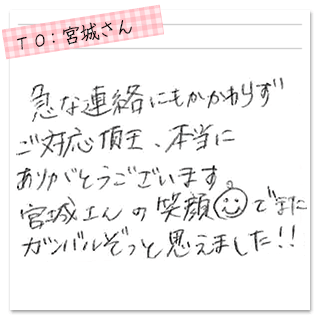 TO:宮城さん
急な連絡にもかかわらず
ご対応頂き、本当に
ありがとうございます。
宮城さんの笑顔でまた
ガンバルぞっと思えました!!